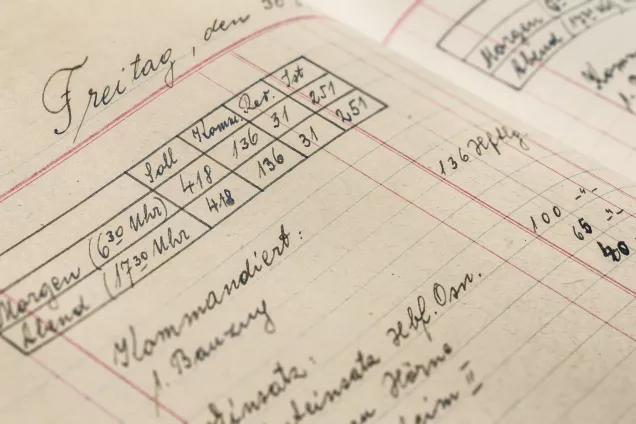 Freitag, den 30
Soll Komm. Rev. Ist
Morgen (6³⁰ Uhr) 418 136 31 251
Abend (17³⁰ Uhr 418 136 31 251
Kommandiert:
f. Bauzug 136 Hftlg.
100 -"-
65 -"-
40
Hbf. Osn.
Hörne
II
Morgen
Abend